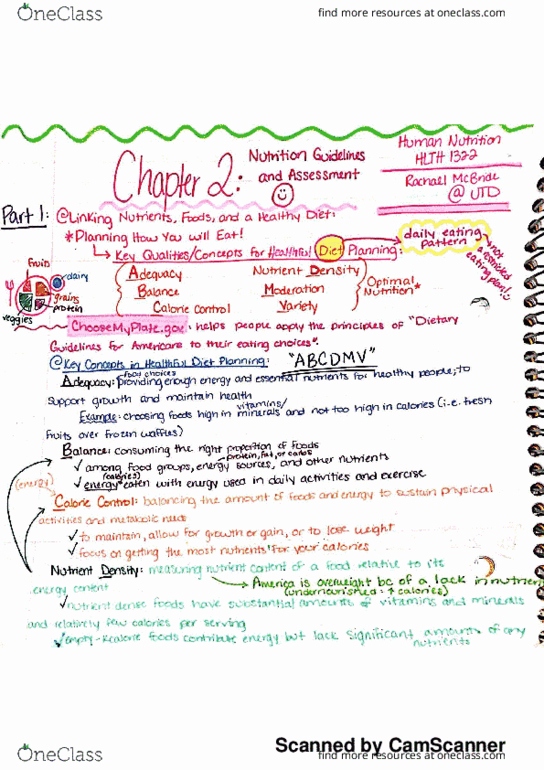 OneClass
find more resources at oneclass.com
Human Nutrition
HLTH 1322
Rachael McBride
@ UTD
Chapter 2:
Nutrition Guidelines
and Assessment
Part 1:
@Linking Nutrients, Foods, and a Healthy Diet:
*Planning How You will Eat!
Key Qualities/Concepts for Healthful Diet Planning:
daily eating
pattern
not
a restricted
eating plan!
Adequacy
Balance
Calorie Control
Nutrient Density
Moderation
Variety
Optimal
Nutrition*
fruits
dairy
grains
protein
veggies
ChooseMyPlate.gov: helps people apply the principles of "Dietary
Guidelines for Americans to their eating choices".
@Key Concepts in Healthful Diet Planning: "ABCDMV"
food choices
Adequacy: providing enough energy and essential nutrients for healthy people; to
support growth and maintain health
vitamins/
Example: choosing foods high in minerals and not too high in calories (i.e. fresh
fruits over frozen waffles)
Balance: consuming the right proportion of foods
protein, fat, or carbs
✓ among food groups, energy sources, and other nutrients
(calories)
✓ energy eaten with energy used in daily activities and exercise
(energy)
Calorie Control: balancing the amount of foods and energy to sustain physical
activities and metabolic need
✓ to maintain, allow for growth or gain, or to lose weight
✓ focus on getting the most nutrients for your calories
Nutrient Density: measuring nutrient content of a food relative to its
energy content
America is overweight bc of a lack in nutrien
(undernourished: ↑ calories)
✓ nutrient dense foods have substantial amounts of vitamins and minerals
and relatively few calories per serving
✓ empty-kcalorie foods contribute energy but lack significant amounts of any
nutrients
Scanned by CamScanner
OneClass
find more resources at oneclass.com